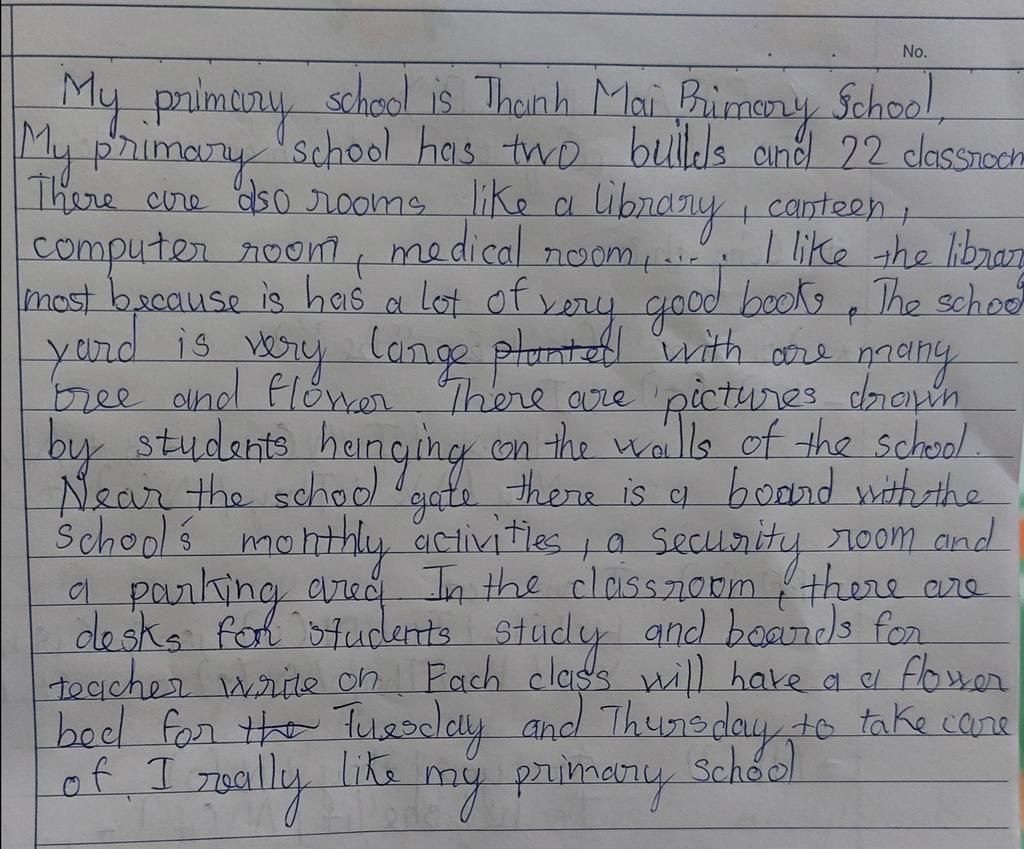 No.
My primary school is Thanh Mai Primary School,
My primary school has two builds and 22 classroom
There are also rooms like a library, canteen,
computer room, medical room, .... I like the librar
most because is has a lot of very good books. The school
yard is very large planted with are many
tree and flower. There are pictures drawn
by students hanging on the walls of the school.
Near the school gate there is a board with the
school's monthly activities, a security room and
a parking area. In the classroom, there are
desks for students study and boards for
teacher write on. Each class will have a a flower
bed for the Tuesday and Thursday to take care
of. I really like my primary school